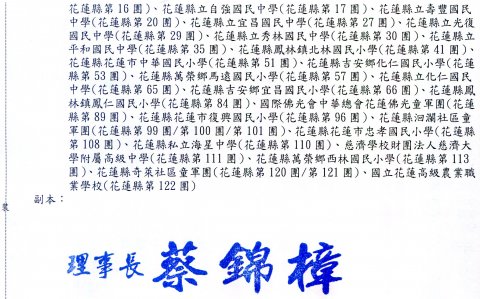 花蓮縣第 16 團)、花蓮縣立自強國民中學(花蓮縣第 17 團)、花蓮縣立壽豐國民
中學(花蓮縣第 20 團)、花蓮縣立宜昌國民中學(花蓮縣第 27 團)、花蓮縣立光復
國民中學(花蓮縣第 29 團)、花蓮縣立秀林國民中學(花蓮縣第 30 團)、花蓮縣立
平和國民中學(花蓮縣第 35 團)、花蓮縣鳳林鎮北林國民小學(花蓮縣第 41 團)、
花蓮縣花蓮市中華國民小學(花蓮縣第 51 團)、花蓮縣吉安鄉化仁國民小學(花蓮
縣第 53 團)、花蓮縣萬榮鄉馬遠國民小學(花蓮縣第 57 團)、花蓮縣立化仁國民
中學(花蓮縣第 65 團)、花蓮縣吉安鄉宜昌國民小學(花蓮縣第 66 團)、花蓮縣鳳
林鎮鳳仁國民小學(花蓮縣第 84 團)、國際佛光會中華總會花蓮佛光童軍團(花蓮
縣第 89 團)、花蓮縣花蓮市復興國民小學(花蓮縣第 96 團)、花蓮縣洄瀾社區童
軍團(花蓮縣第 99 團/第 100 團/第 101 團)、花蓮縣花蓮市忠孝國民小學(花蓮縣
第 108 團)、花蓮縣私立海星中學(花蓮縣第 110 團)、慈濟學校財團法人慈濟大
學附屬高級中學(花蓮縣第 111 團)、花蓮縣萬榮鄉西林國民小學(花蓮縣第 113
團)、花蓮縣奇萊社區童軍團(花蓮縣第 120 團/第 121 團)、國立花蓮高級農業職
業學校(花蓮縣第 122 團)
裝
副本：
理事長 蔡錦樟